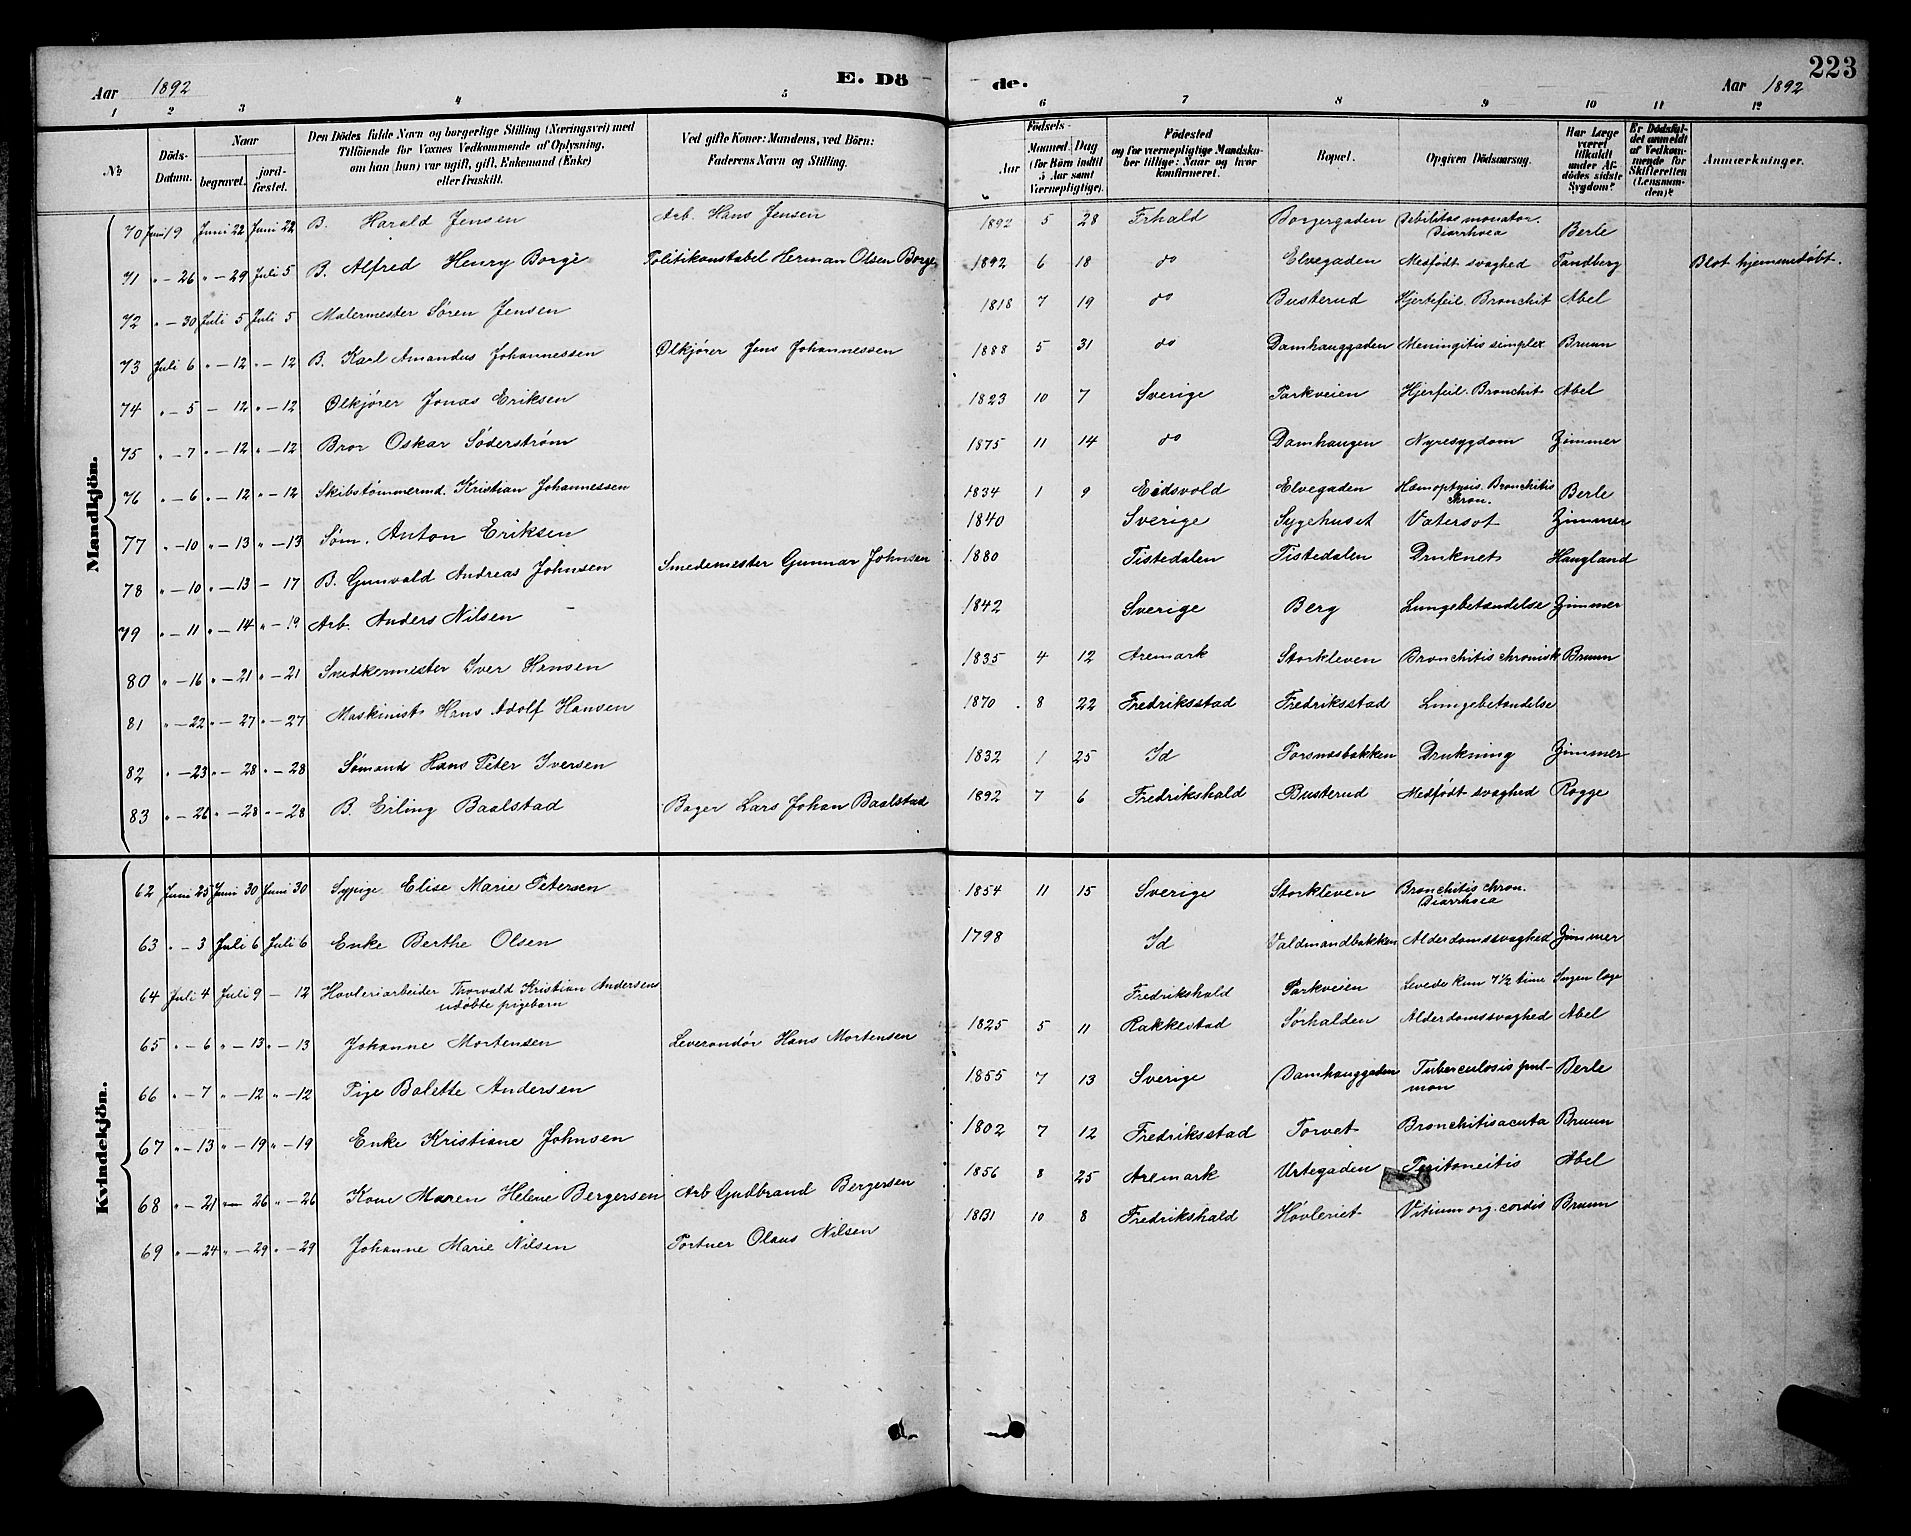 Aar 1892 E. Dö de. Aar 1892 223
1 2 3 4 5 6 7 8 9 10 11 12
No. Döds-Datum. Naar begravet. jordfæstet. Den Dödes fulde Navn og borgerlige Stilling (Næringsvei) med Tilföiende for Voxnes Vedkommende af Oplysning, om han (hun) var ugift, gift, Enkemand (Enke) eller fraskilt. Ved gifte Koner: Mandens, ved Börn: Faderens Navn og Stilling. Födsels- Aar Maaned. Dag (for Börn indtil 5 Aar samt Værnepligtige). Födested og for værnepligtige Mandskaber tillige: Naar og hvor konfirmeret. Bopæl. Opgiven Dödsaarsag. Har Læge været tilkaldt under Afdödes sidste Sygdom? Er Dödsfaldet anmeldt af Vedkommende for Skifteretten (Lensmanden)? Anmærkninger.
Mandkjön.
70 Juni 19 Juni 22 Juni 22 B. Harald Jensen Arb. Hans Jensen 1892 5 28 Frhald Borgergaden Debilitas monator. Diarrhoea Berle
71 " - 26 " - 29 Juli 5 B. Alfred Henry Borge Politikonstabel Herman Olsen Borge 1892 6 18 do Elvegaden Medfödt svaghed Tandberg Blot hjemmedøbt.
72 " - 30 Juli 5 Juli 5 Malermester Søren Jensen 1818 7 19 do Busterud Hjertefeil. Bronchit Abel
73 Juli 6 " - 12 " - 12 B. Karl Amandus Johannessen Ølkjører Jens Johannessen 1888 5 31 do Damhauggaden Meningitis simplex Bruun
74 " - 5 - 12 " - 12 Ølkjører Jonas Eriksen 1823 10 7 Sverige Parkveien Hjerfeil. Bronchit Abel
75 " - 7 " - 12 " - 12 Bror Oskar Søderstrøm 1875 11 14 do Damhaugen Nyresygdom Zimmer
76 " - 6 " - 12 " - 12 Skibstømmermd. Kristian Johannessen 1834 1 9 Eidsvold Elvegaden Hæmoptysis. Bronchitis chron. Berle
77 " - 10 " - 13 " - 13 Søm. Anton Eriksen 1840 Sverige Sygehuset Vatersot Zimmer
78 " - 10 " - 13 - 17 B. Gunvald Andreas Johnsen Smedemester Gunnar Johnsen 1880 Tistedalen Tistedalen Druknet Haugland
79 " - 11 " - 14 " - 19 Arb. Anders Nilsen 1842 Sverige Berg Lungebetændelse Zimmer
80 " - 16 " - 21 " - 21 Snedkermester Iver Hansen 1835 4 12 Aremark Storkleven Bronchitis chronisk Bruun
81 " - 22 " - 27 " - 27 Maskinist Hans Adolf Hansen 1870 8 22 Fredriksstad Fredriksstad Lungebetændelse
82 " - 23 " - 28 " - 28 Sømand Hans Peter Iversen 1832 1 25 Id Forsnæsbakken Drukning Zimmer
83 " - 26 " - 28 " - 28 B. Erling Baalstad Bager Lars Johan Baalstad 1892 7 6 Fredrikshald Busterud Medfödt svaghed Rogge
Kvindekjön.
62 Juni 25 Juni 30 Juni 30 Sypige Elise Marie Petersen 1854 11 15 Sverige Storkleven Bronchitis chron. Diarrhoea
63 " - 3 Juli 6 Juli 6 Enke Berthe Olsen 1798 Id Valdmandbakken Alderdomssvaghed Zimmer
64 Juli 4 Juli 9 - 12 Høvleriarbeider Thorvald Kristian Andersens udøbte pigebarn Fredrikshald Parkveien Levede kun 7 1/2 time Ingen læge
65 " - 6 " - 13 " - 13 Johanne Mortensen Leverandør Hans Mortensen 1825 5 11 Rakkestad Sørhalden Alderdomssvaghed Abel
66 " - 7 " - 12 " - 12 Pige Bolette Andersen 1855 7 13 Sverige Damhauggaden Tuberculosis pulmon Berle
67 " - 13 " - 19 " - 19 Enke Kristiane Johnsen 1802 7 12 Fredriksstad Torvet Bronchitis acuta Bruun
68 " - 21 " - 26 " - 26 Kone Maren Helene Bergersen Arb Gudbrand Bergersen 1856 8 25 Aremark Urtegaden Peritoneitis Abel
69 " - 24 " - 29 " - 29 Johanne Marie Nilsen Portner Olaus Nilsen 1831 10 8 Fredrikshald Høvleriet Vitium org. cordis Bruun